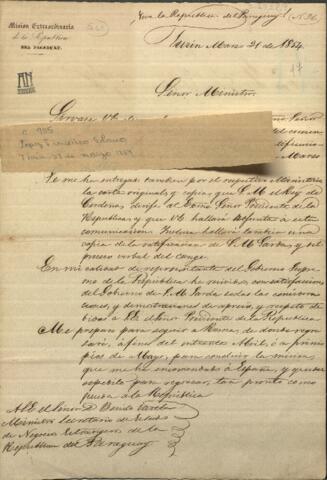 Mision Extraordinaria
de la Republica
DEL PARAGUAY.
Viva la Republica del Paraguay! (N. 26)
Turin Marzo 31 de 1854.
17
Señor Ministro.
AN
c. 985
Lopez Francisco Solano
Turin 31 de marzo 1854
Marzo
Se me ha entregado tambien por el respectivo Ministerio
la carta original y copia que S. M. el Rey de
Cerdeña dirije al Exmo Señor Presidente de la
Republica y que VE hallará adjunta a esta
comunicacion. Incluso hallará tambien una
copia de la ratificacion de S. M. Sarda, y del
proceso verbal del cange.
En mi calidad de representante del Gobierno Supre
mo de la Republica he recibido con satisfaccion
del Gobierno de S. M. Sarda todas las consideraciones
y demostraciones de aprecio, y respeto de
bidos a S.E. el Señor Presidente de la Republica
Me preparo para seguir a Roma, de donde regre
saré, a fines del entrante Abril, ó a prin
cipios de Mayo, para concluir la mision
que me ha encomendado a España, y quedar
expedito para regresar, tan pronto como
pueda a la Republica
A S.E. el Señor D. Benito Varela
Ministro Secretario de Estado
de Negocios Estrangeros de la
Republica del Paraguay